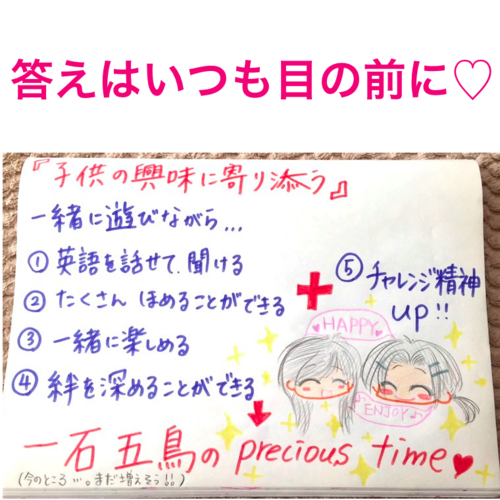 答えはいつも目の前に♡
『子供の興味に寄り添う』
一緒に遊びながら...
① 英語を話せて、聞ける
② たくさん ほめることができる
③ 一緒に楽しめる
④ 絆を深めることができる
+
⑤ チャレンジ精神
up!!
♥HAPPY♥
♪ENJOY♪
↓
一石五鳥の precious time♥
(今のところ…。まだ増えそう!!)